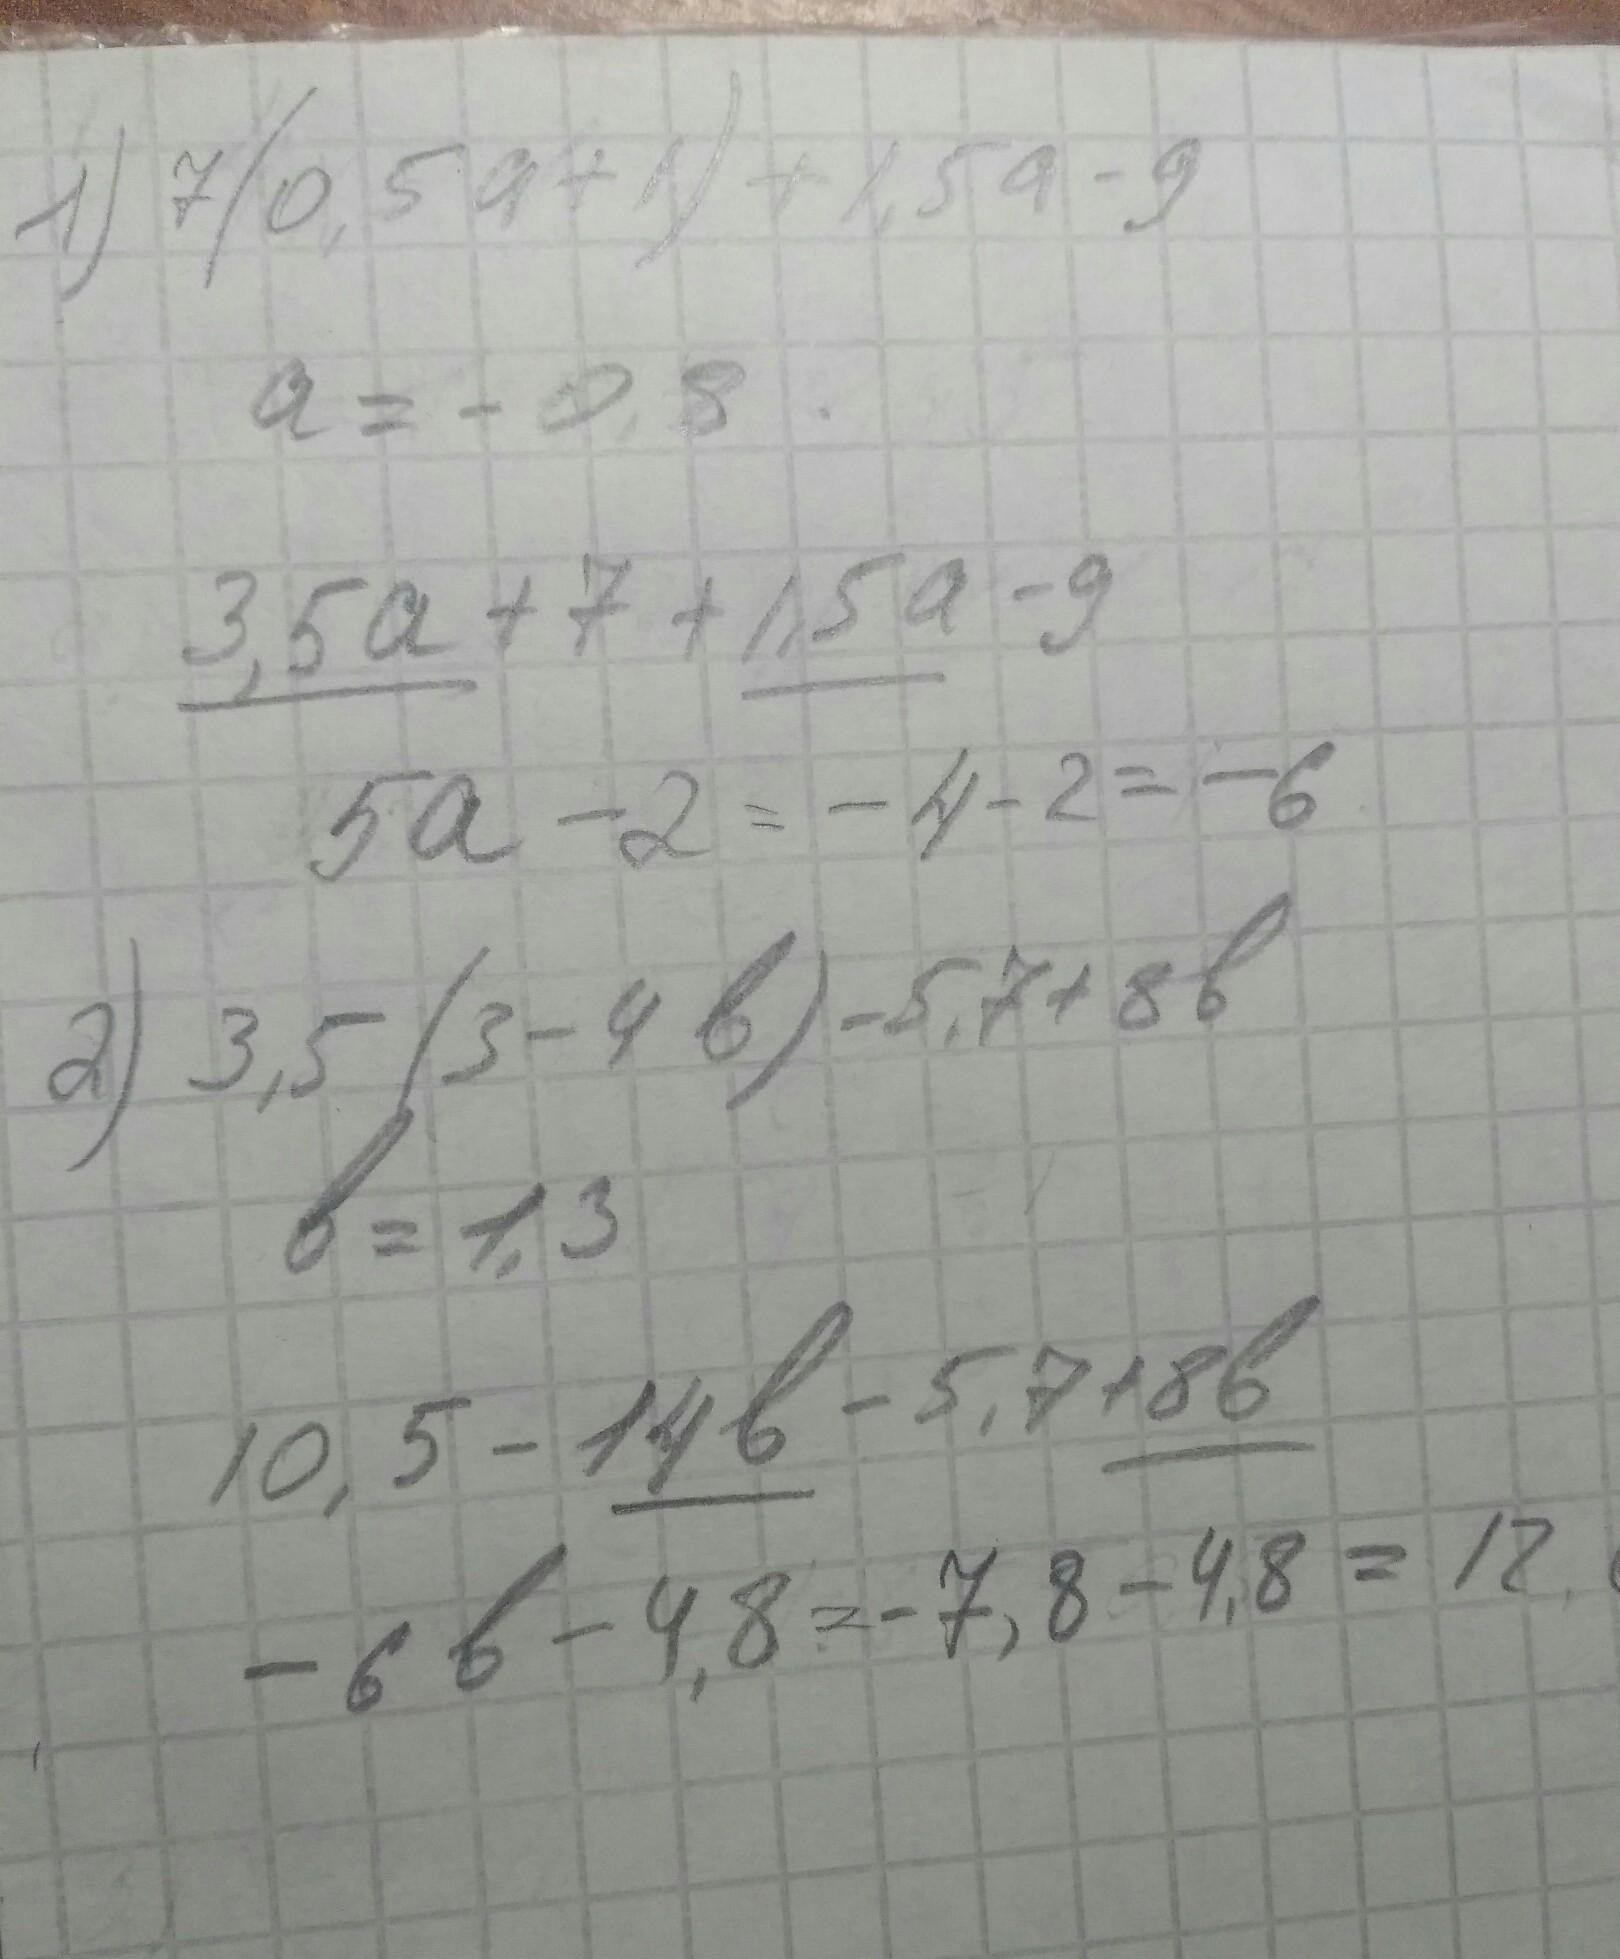 1) 7(0,5a+1)+1,5a-9
a=-0,8
3,5a+7+1,5a-9
5a-2=-4-2=-6
2) 3,5(3-4b)-5,7+8b
b=1,3
10,5-14b-5,7+8b
-6b-4,8=-7,8-4,8=12,